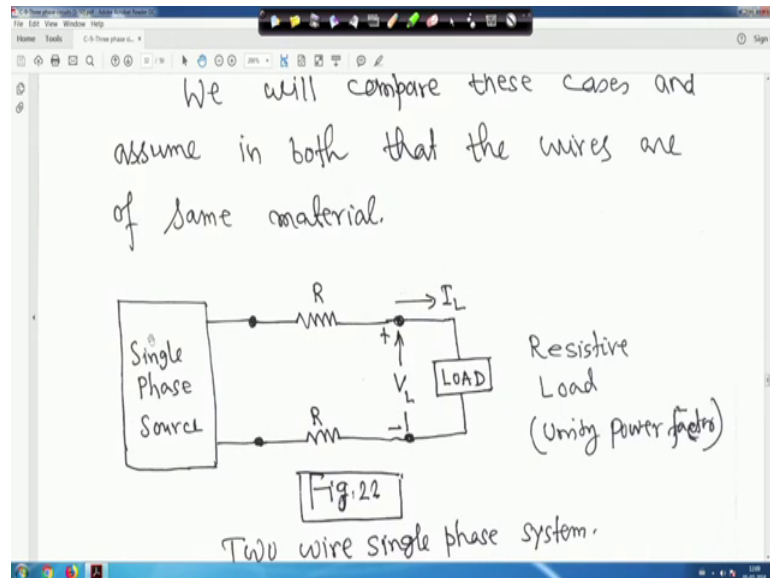 File Edit View Window Help
Home Tools C-9-Three phase ci... × Sign
We will compare these cases and
assume in both that the wires are
of same material.
R
I_L
Single
Phase
Source
+
V_L
-
LOAD
R
Resistive
Load
(Unity power factor)
Fig. 22
Two wire single phase system.